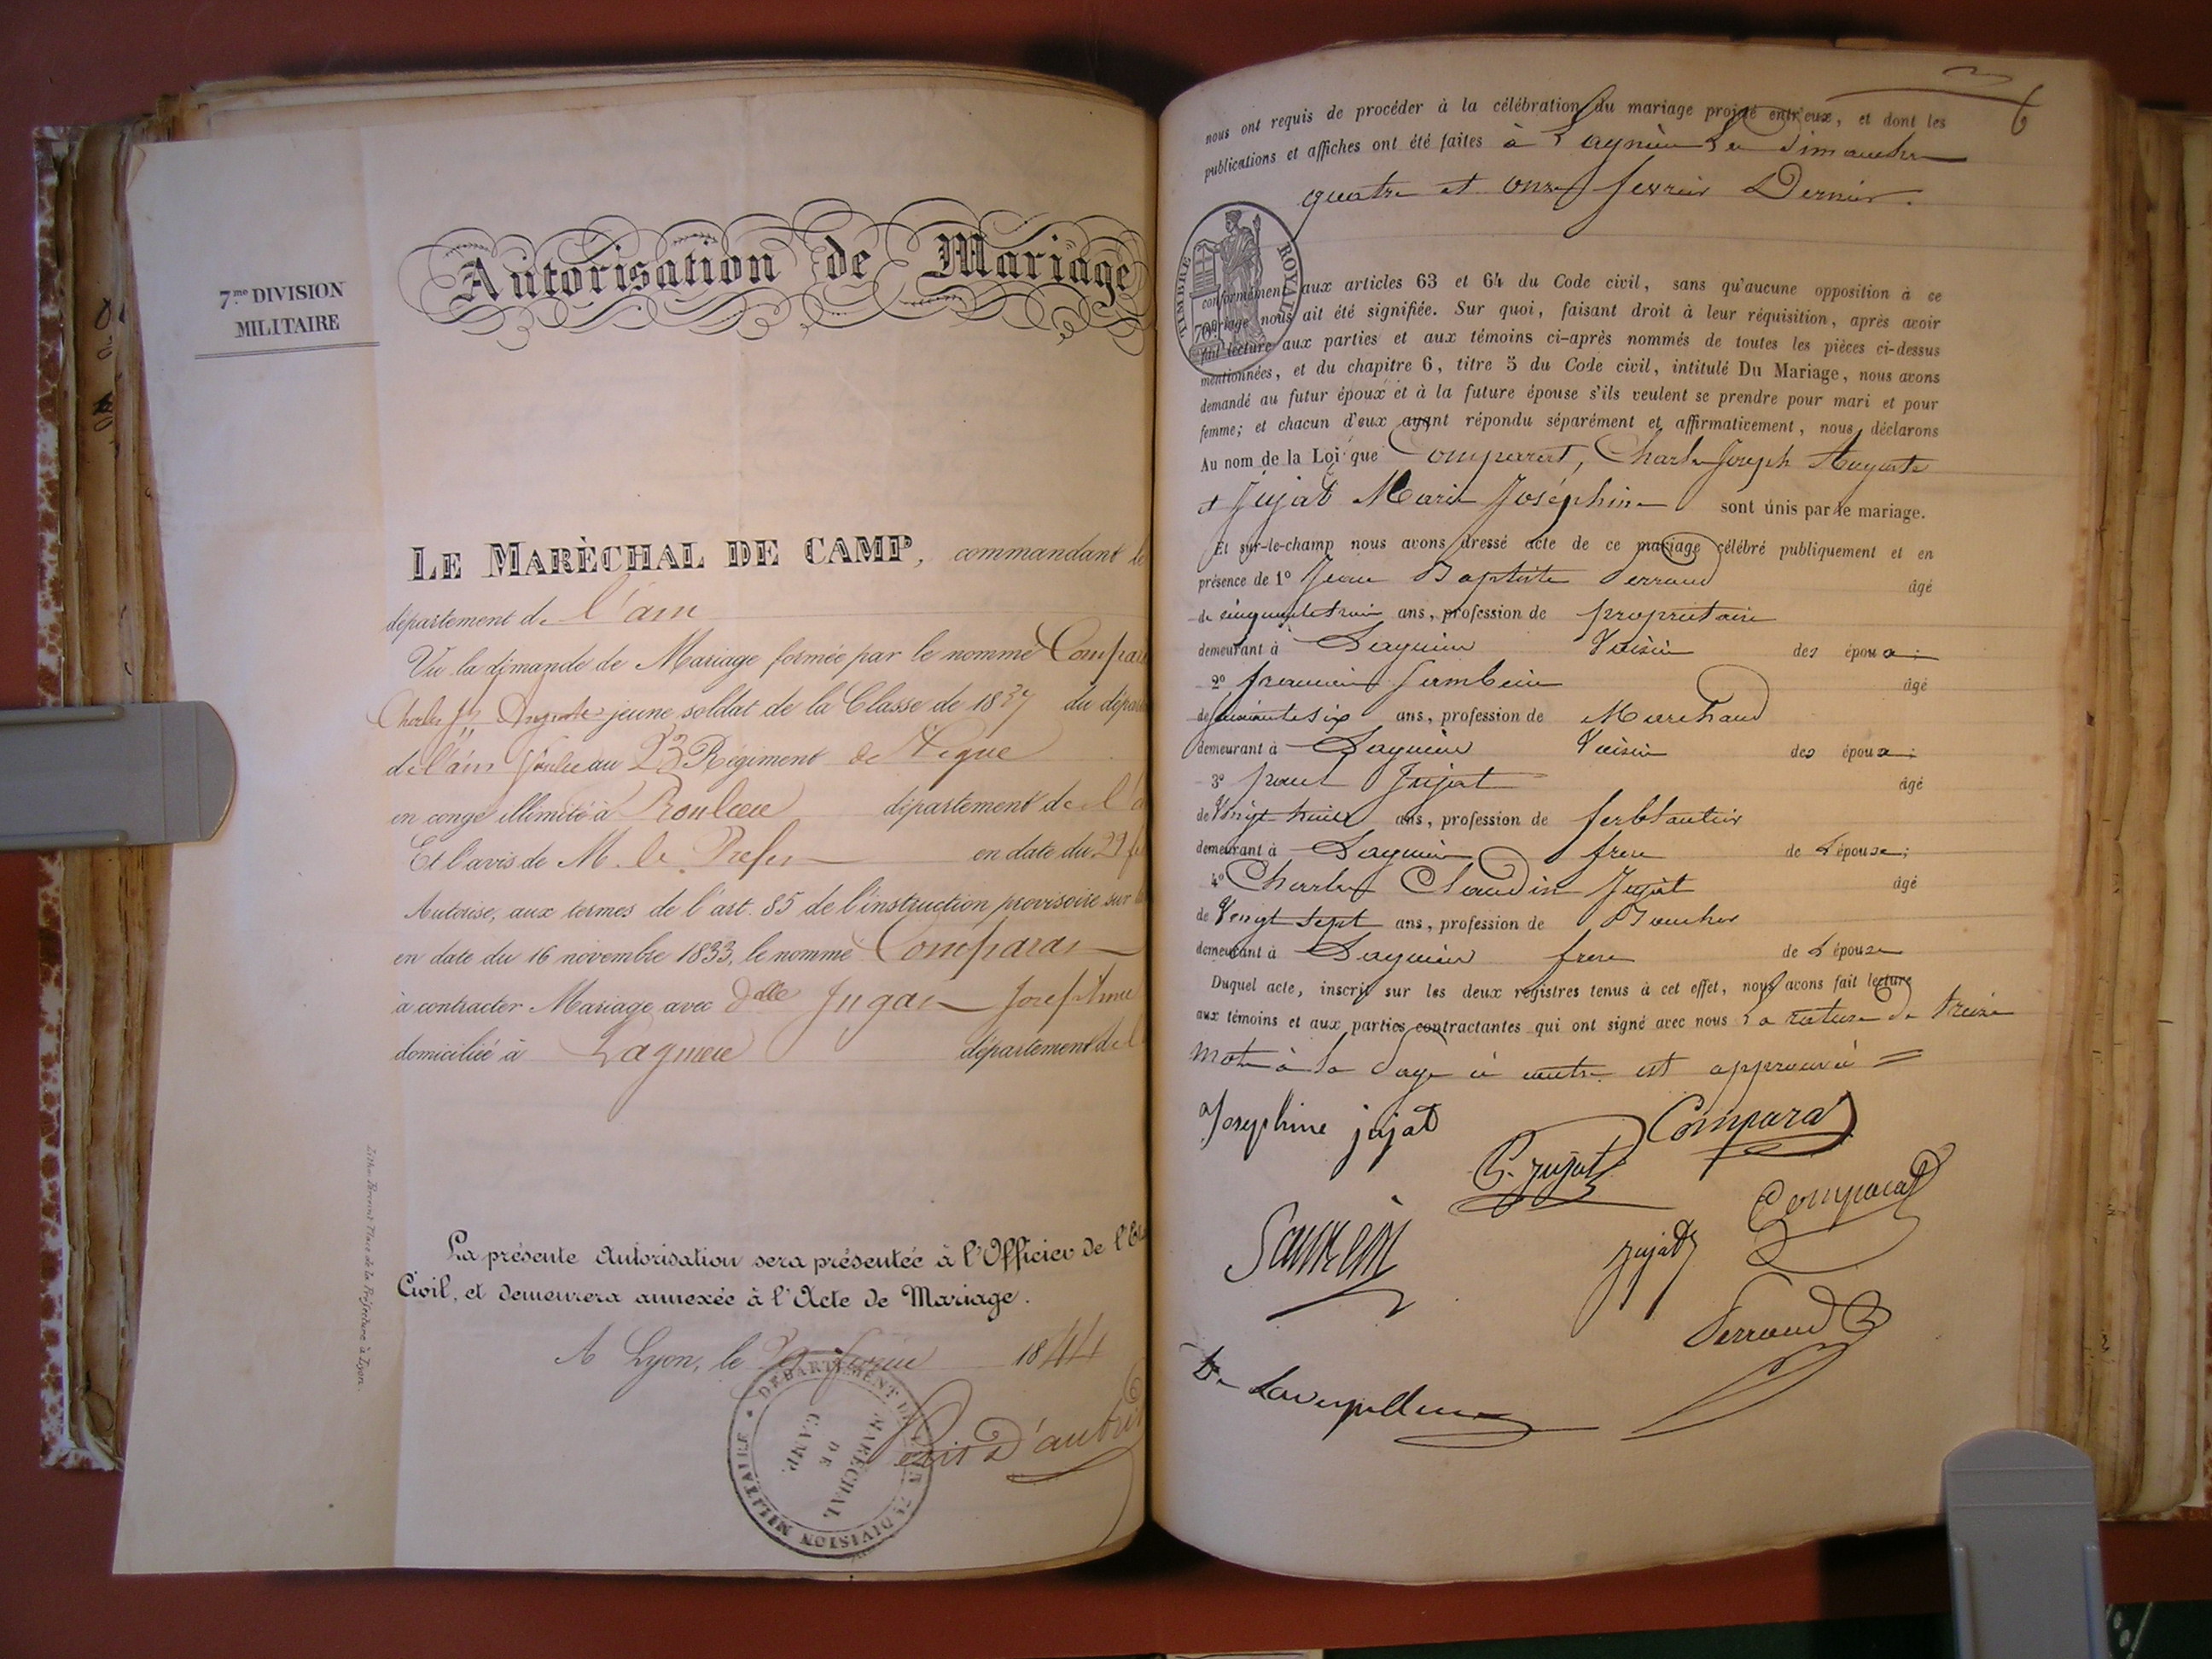 7.me DIVISION
MILITAIRE
Autorisation de Mariage
LE MARÉCHAL DE CAMP, commandant le
département de l'ain
Vu la demande de Mariage formée par le nommé Compara
Charles Jh Auguste jeune soldat de la Classe de 1837 du départ
de l'ain au 23 Régiment de Ligne
en congé illimité à département de l'a
Et l'avis de M. le Prefet en date du 29 fe
Autorise, aux termes de l'art. 85 de l'instruction provisoire sur
en date du 16 novembre 1833, le nommé Comparat
à contracter Mariage avec dlle Jugat
domiciliée à Lagnieu département de l
La présente Autorisation sera présentée à l'Officier de l'Eta
Civil, et demeurera annexée à l'Acte de Mariage.
A Lyon, le 29 fevrier 1844
DEPARTEMENT DE L'AIN 7e DIVISION MILITAIRE
MARECHAL
DE
CAMP
Litho. Place de la Préfecture à Lyon.
6
nous ont requis de procéder à la célébration du mariage projeté entr'eux, et dont les
publications et affiches ont été faites à Lagnieu Les Dimanches
quatre et onze fevrier Dernier.
TIMBRE ROYAL
70
conformément aux articles 63 et 64 du Code civil, sans qu'aucune opposition à ce
mariage nous ait été signifiée. Sur quoi, faisant droit à leur réquisition, après avoir
fait lecture aux parties et aux témoins ci-après nommés de toutes les pièces ci-dessus
mentionnées, et du chapitre 6, titre 5 du Code civil, intitulé Du Mariage, nous avons
demandé au futur époux et à la future épouse s'ils veulent se prendre pour mari et pour
femme; et chacun d'eux ayant répondu séparément et affirmativement, nous déclarons
Au nom de la Loi que Comparat, Charles Joseph Auguste
et Jujat Marie Joséphine sont unis par le mariage.
Et sur-le-champ nous avons dressé acte de ce mariage célébré publiquement et en
présence de 1º Jean Baptiste Perraud âgé
de cinquante trois ans, profession de propriétaire
demeurant à Lagnieu Voisin des époux;
2º francois âgé
de six ans, profession de Marchand
demeurant à Lagnieu Voisin des époux;
3º Jujat âgé
de Vingt huit ans, profession de ferblantier
demeurant à Lagnieu frere de L'épouse;
4º Charles Claudin Jujat âgé
de Vingt sept ans, profession de Boucher
demeurant à Lagnieu frere de L'épouse
Duquel acte, inscrit sur les deux registres tenus à cet effet, nous avons fait lecture
aux témoins et aux parties contractantes qui ont signé avec nous La rature de treize
mots à la page ci contre est approuvée =
Josephine jujat
Comparat
C. Jujat
Comparat
jujat
Perraud